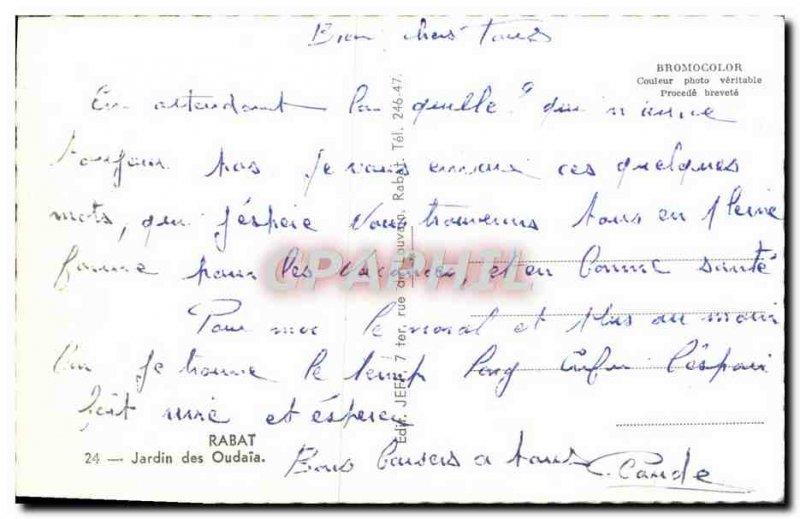 Bien chers Tous
BROMOCOLOR
Couleur photo véritable
Procédé breveté
En attendant la quille" qui n'arrive
toujour pas je vous envoie ces quelques
mots, qui j'éspére vous trouverons tous en pleine
forme pour les vacances, et en bonne santé
Pour moi le moral et plus au moin
bon je trouve le temp long enfin l'éspoir
fait vivre et éspérer
RABAT
24 — Jardin des Oudaïa.
Bons baisers a tous
Edit. JEFF, 7 ter, rue du Louvain, Rabat. Tél. 246.47.
CPAPHIL